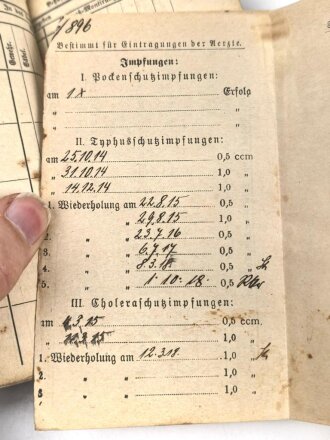 J 896
Bestimmt für Eintragungen der Aerzte.
Impfungen:
I. Pockenschutzimpfungen:
am 1 x Erfolg
„ „
„ „
II. Typhusschutzimpfungen:
am 25.10.14 0,5 ccm
„ 31.10.14 1,0 „
„ 14.12.14 1,0 „
1. Wiederholung am 22.8.15 0,5 „
„ 29.8.15 1,0 „
2. „ „ 23.7.16 0,5 „
3. „ „ 6.7.17 0,5 „
4. „ „ 8.3.18 0,5 „
5. „ „ 1.10.18. 0,5
III. Choleraschutzimpfungen:
am 4.3.15 0,5 ccm.
„ 1,0 „
1. Wiederholung am 12.3.18 1,0 „
2 „ „ 1,0 „
3 „ „ 1,0 „